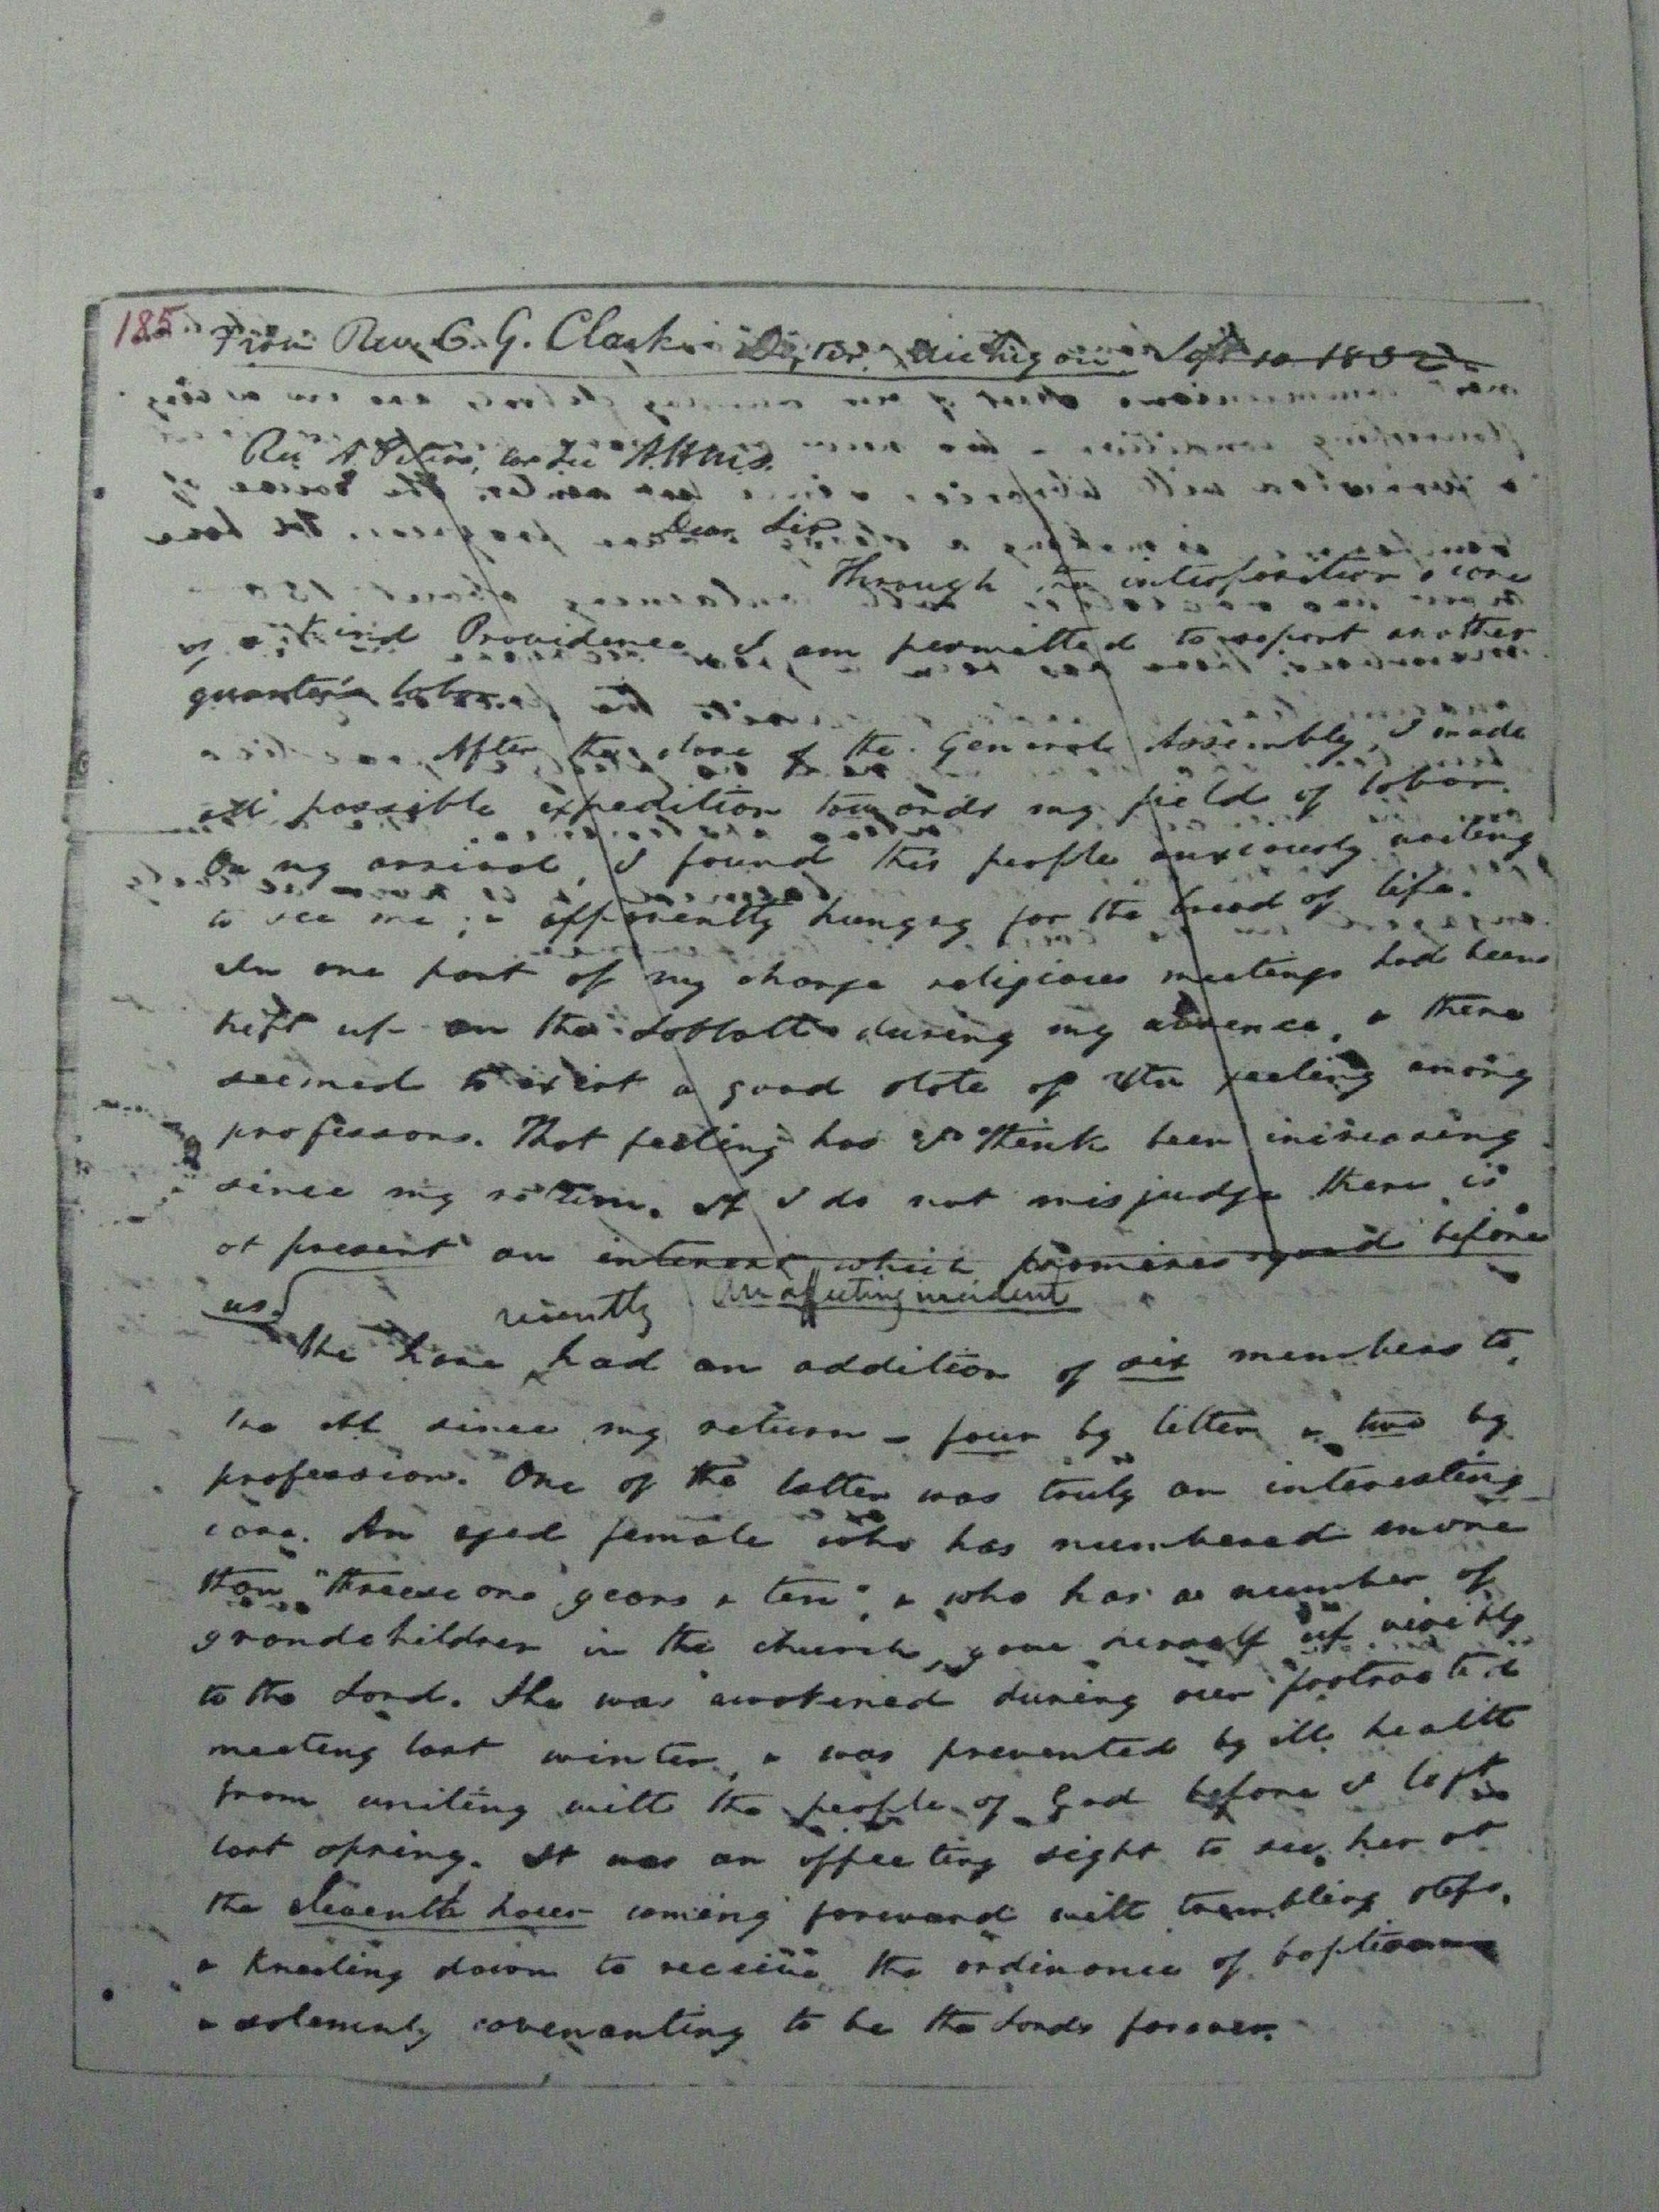 185
From Rev. C. G. Clark Dexter Michigan Sept 10 1832
Rev A Peters, Cor Sec A.H.M.S.
Dear Sir
Through the interposition & care
of a kind Providence I am permitted to report another
quarter's labor.
After the close of the General Assembly, I made
all possible expedition towards my field of labor.
On my arrival, I found this people anxiously waiting
to see me; & apparently hungry for the bread of life.
In one part of my charge religious meetings had been
kept up on the Sabbath during my absence, & there
seemed to exist a good state of feeling among
professors. That feeling has I think been increasing
since my return. If I do not misjudge there is
at present an interest which promises good before
us.
An affecting incident
recently
We have had an addition of six members to
the ch since my return - four by letter & two by
profession. One of the latter was truly an interesting
case. An aged female who has numbered more
than "threescore years & ten", & who has a number of
grandchildren in the church, gave herself up visibly
to the Lord. She was awakened during our protracted
meeting last winter, & was prevented by ill health
from uniting with the people of God before I left
last spring. It was an affecting sight to see her at
the eleventh hour coming forward with trembling steps,
& kneeling down to receive the ordinance of baptism
& solemnly covenanting to be the Lords forever.